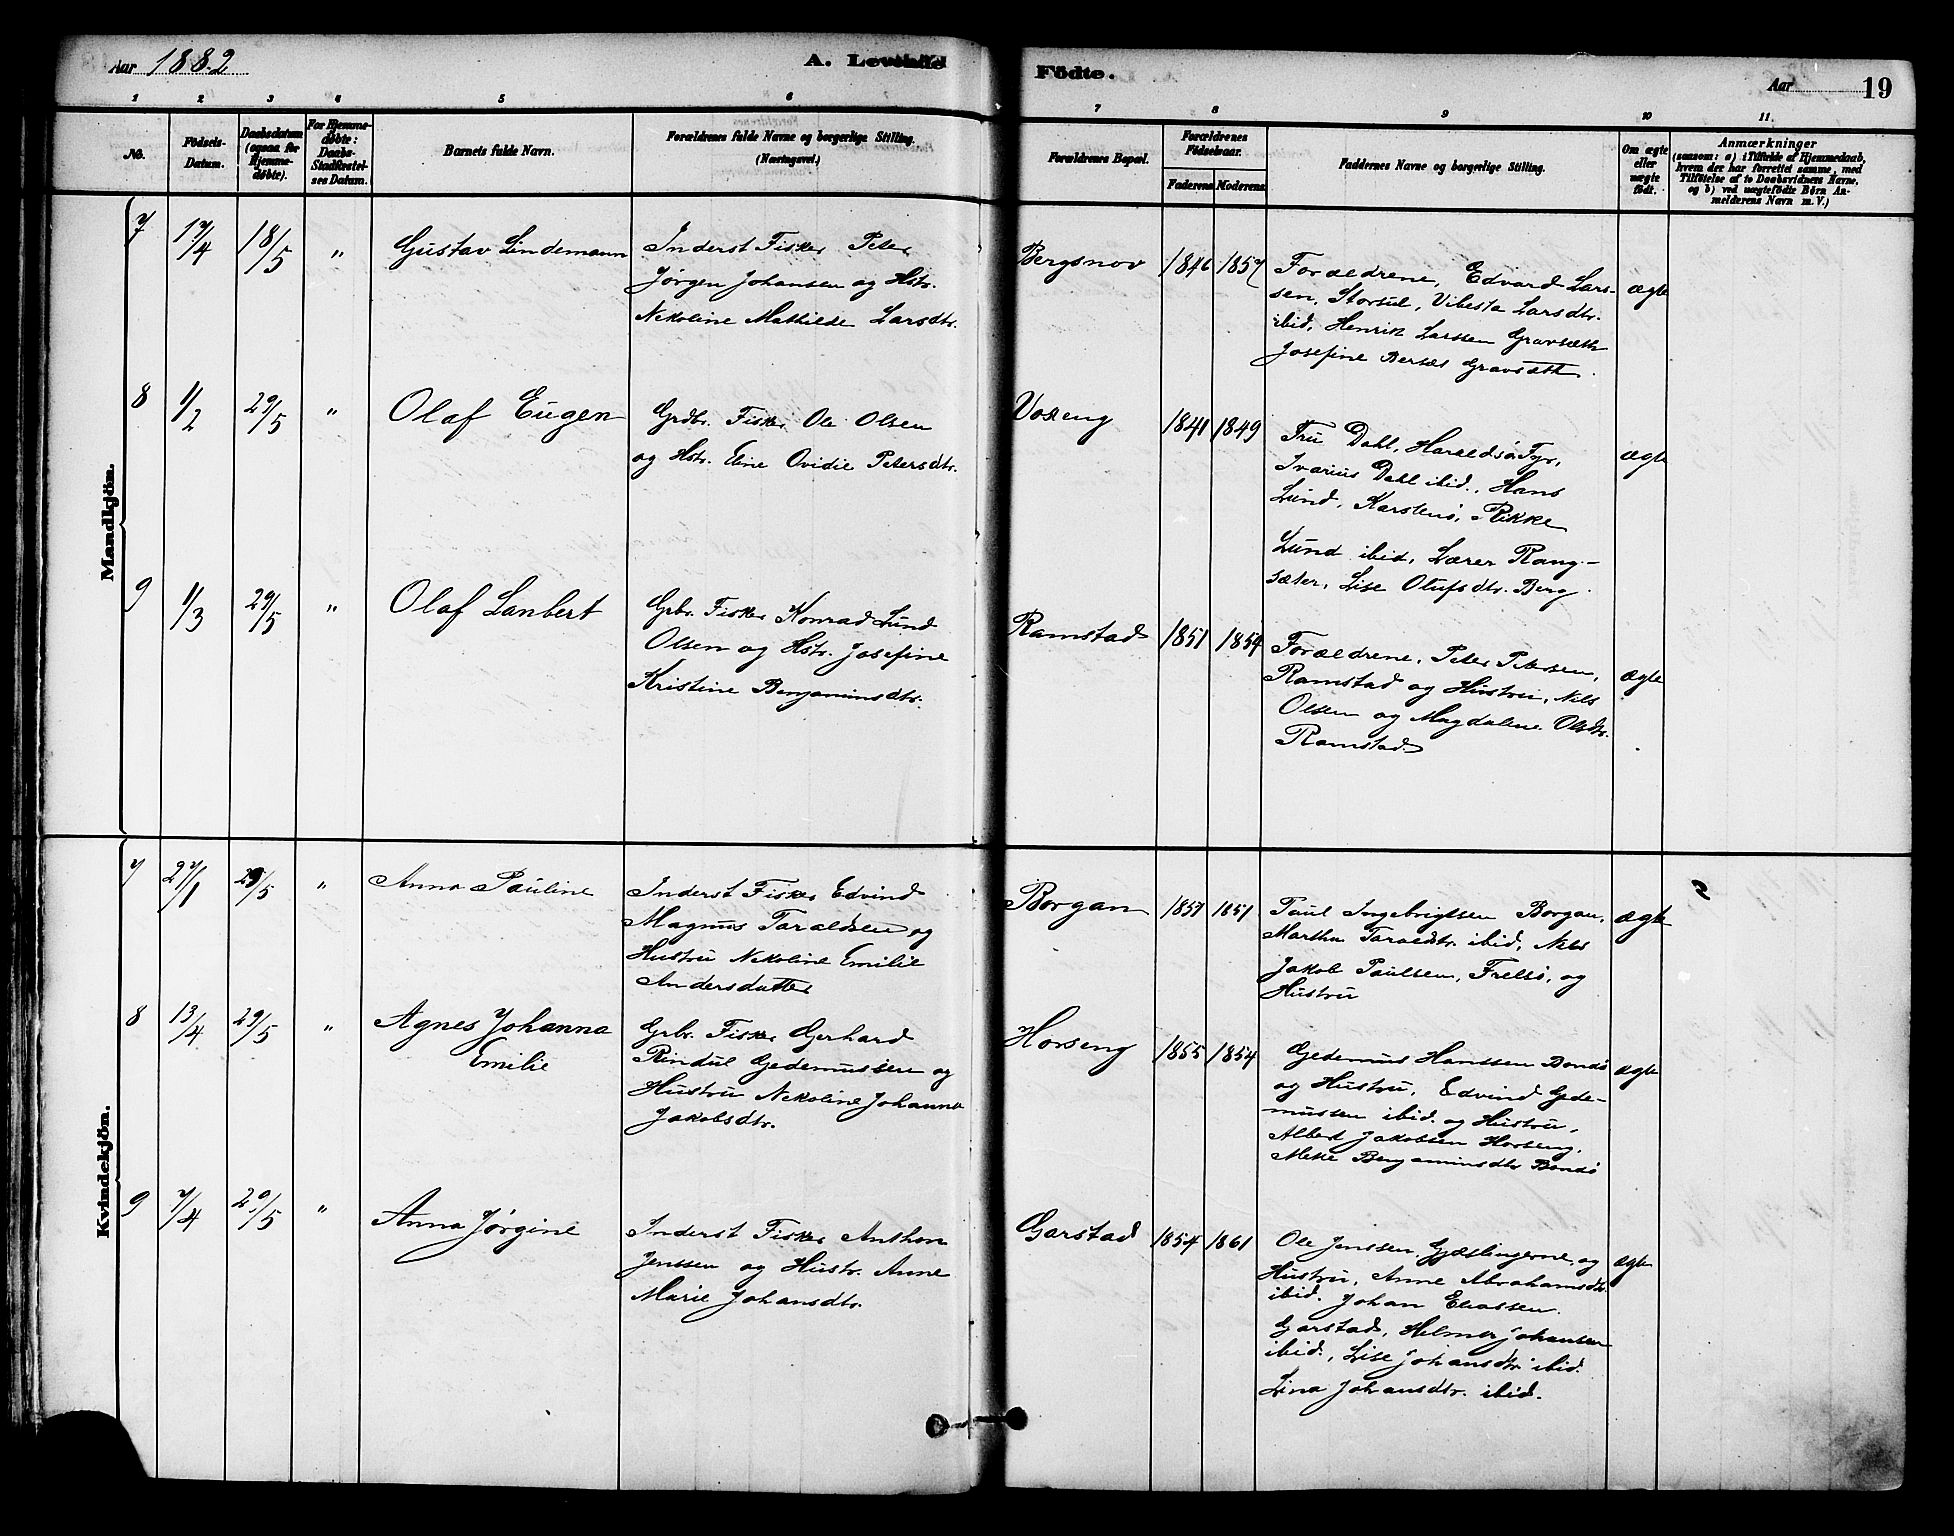 Aar 1882
A. Levende
Födte.
Aar 19
1 2 3 4 5 6 7 8 9 10 11.
No.
Födsels-
Datum.
Daabsdatum
(ogsaa for
Hjemme-
døbte).
For Hjemme-
døbte:
Daabs-
Stadfæstel-
ses Datum.
Barnets fulde Navn.
Forældrenes fulde Navne og borgerlige Stilling.
(Næringsvei.)
Forældrenes Bopæl.
Forældrenes
Födselsaar.
Faderens Moderens
Faddernes Navne og borgerlige Stilling.
Om ægte
eller
uægte
födt.
Anmærkninger
(saasom: a) i Tilfælde af Hjemmedaab,
hvem der har forrettet samme, med
Tilföielse af to Daabsvidners Navne,
og b) ved uægtefödte Börn An-
melderens Navn m. V.)
Mandkjön.
7 17/4 18/5 " Gustav Lindemann
Inderst Fisker Peter
Jørgen Johansen og Hstr.
Nekoline Mathilde Larsdtr.
Bergsnov 1846 1857
Forældrene, Edvard Lars-
sen, Storsul, Vibesta Larsdtr.
ibid, Henrik Larssen Gravsæth
Josefine Bersæs Gravsæth.
ægte
8 1/2 29/5 " Olaf Eugen
Grdbr. Fisker Ole Olsen
og Hstr. Eline Ovidie Petersdtr.
Voxeng 1841 1849
Fru Dahl, Haraldsø Fyr,
Ivarius Dahl ibid., Hans
Lund, Karstenø, Rikke
Lund ibid, Lærer Rang-
sæter, Lise Olufsdtr. Berg.
ægte
9 1/3 29/5 " Olaf Lanbert
Grbr. Fisker Konrad Lund
Olsen og Hstr. Josefine
Kristine Benjaminsdtr.
Ramstad 1851 1854
Forældrene, Peter Petersen,
Ramstad og Hustru, Nils
Olsen og Magdalene Olsdtr.
Ramstad
ægte
Kvindekjön.
7 27/1 29/5 " Anna Pauline
Inderst Fisker Edvind
Magnus Taraldsen og
Hustru Nekoline Emilie
Andersdatter
Borgan 1857 1851
Paul Ingebrigtsen Borgan,
Martha Taraldstr. ibid, Nils
Jakob Paulsen, Frelsø, og
Hustru
ægte
8 13/4 29/5 " Agnes Johanna
Emilie
Grbr. Fisker Gerhard
Rindul Gedemussen og
Hustru Nekoline Johanna
Jakobsdtr.
Horseng 1855 1854
Gedemus Hanssen Bondø
og Hustru, Edvind Gede-
mussen ibid. og Hustru,
Albert Jakobsen Horseng,
Meke Benjaminsdtr Bondø
ægte
9 7/4 29/5 " Anna Jørgine
Inderst Fisker Anthon
Jenssen og Hustr. Anne
Marie Johansdtr.
Garstad 1854 1861
Ole Jenssen, Gjæslingerne, og
Hustru, Anne Abrahamsdtr.
ibid. Johan Eliassen
Garstad, Helmer Johansen
ibid., Lise Johansdtr. ibid.
Lina Johansdtr. ibid.
ægte